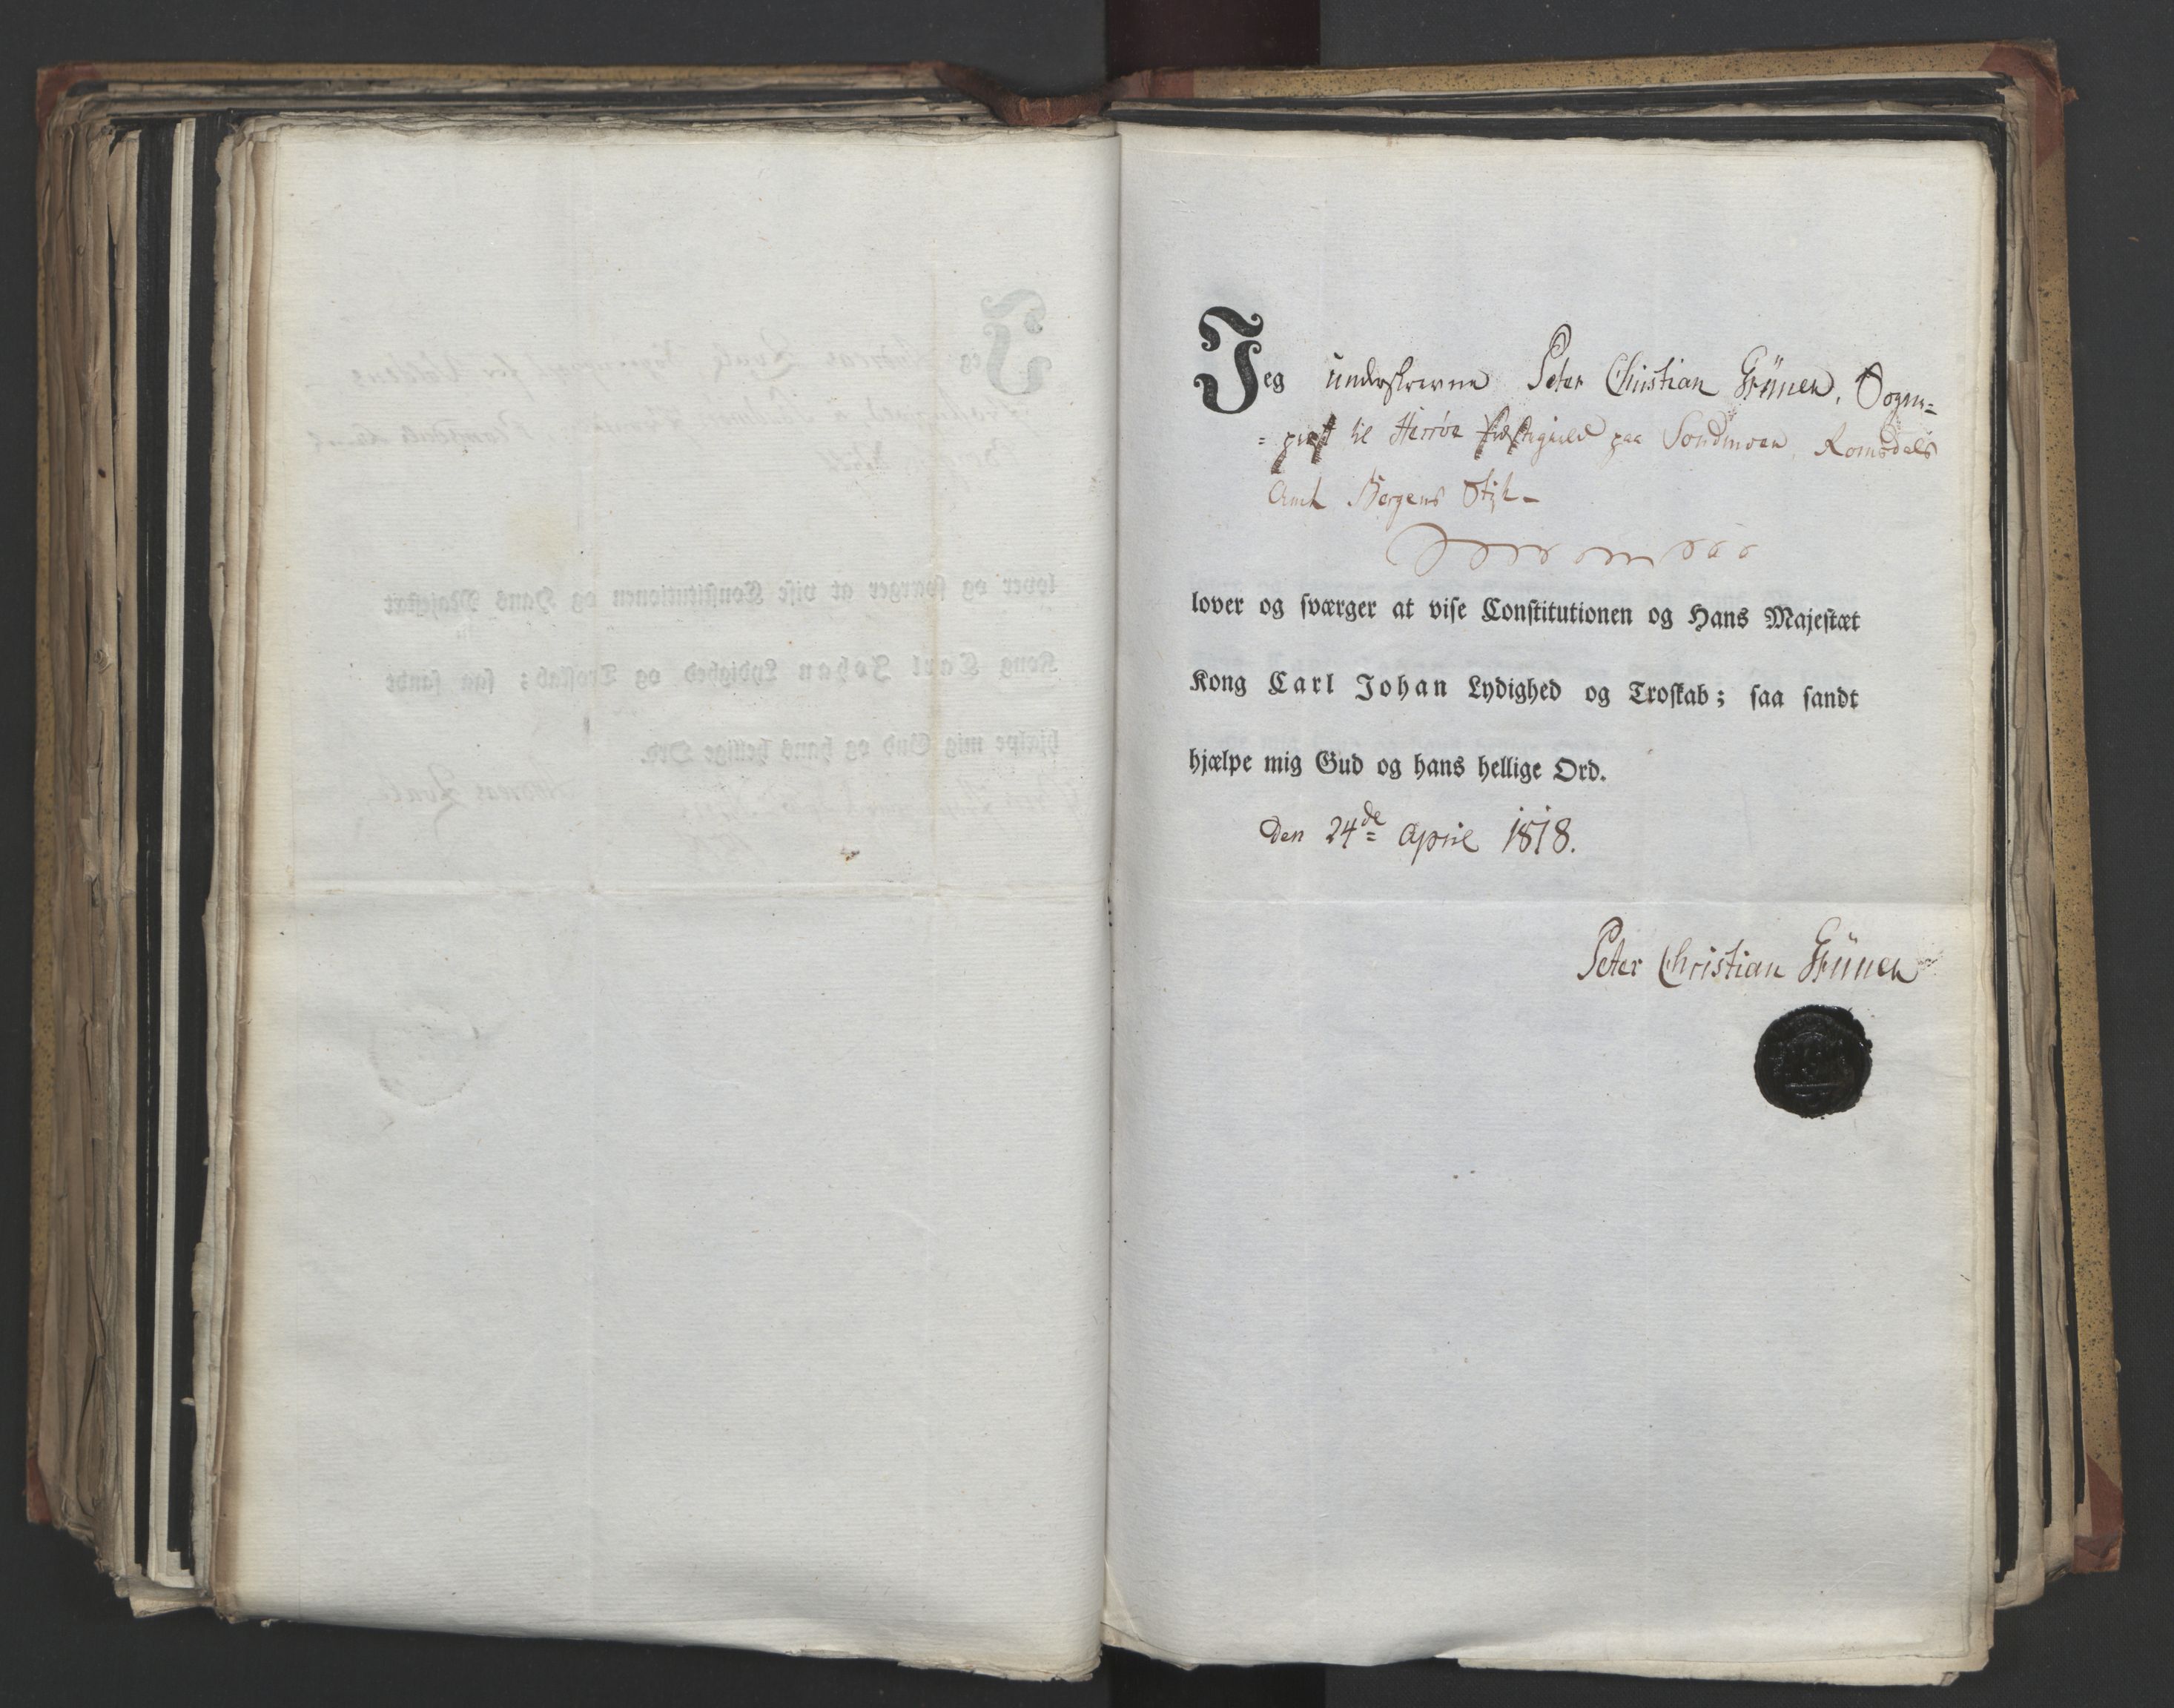 Jeg underskrevne Peter Christian Grünen, Sogne=
=præst til Herröe Præstegield paa Söndmöer, Romsdals
Amt Bergens Stift –
lover og sværger at vise Constitutionen og Hans Majestæt
Kong Carl Johan Lydighed og Troskab; saa sandt
hjælpe mig Gud og hans hellige Ord.
Den 24de April 1818.
Peter Christian Grünen